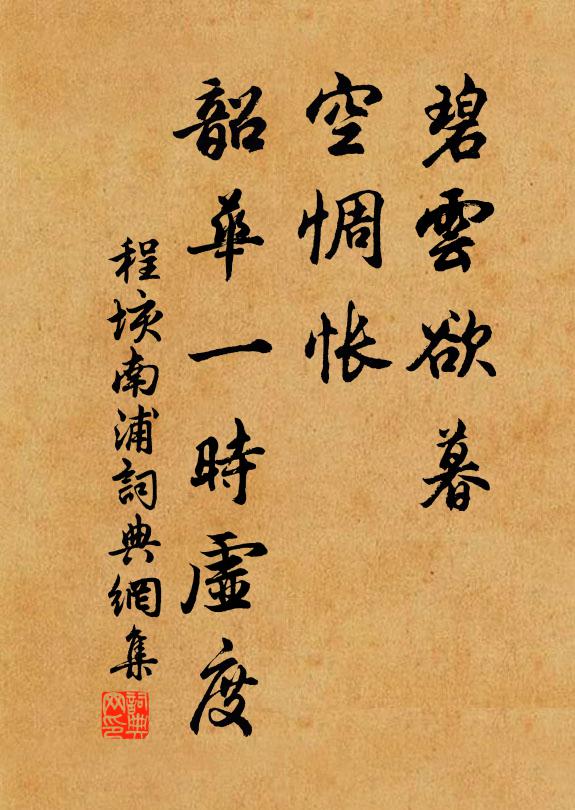 碧雲欲暮
空惆怅
韶華一時虛度
程垓南浦詞典網集
詞典
网印